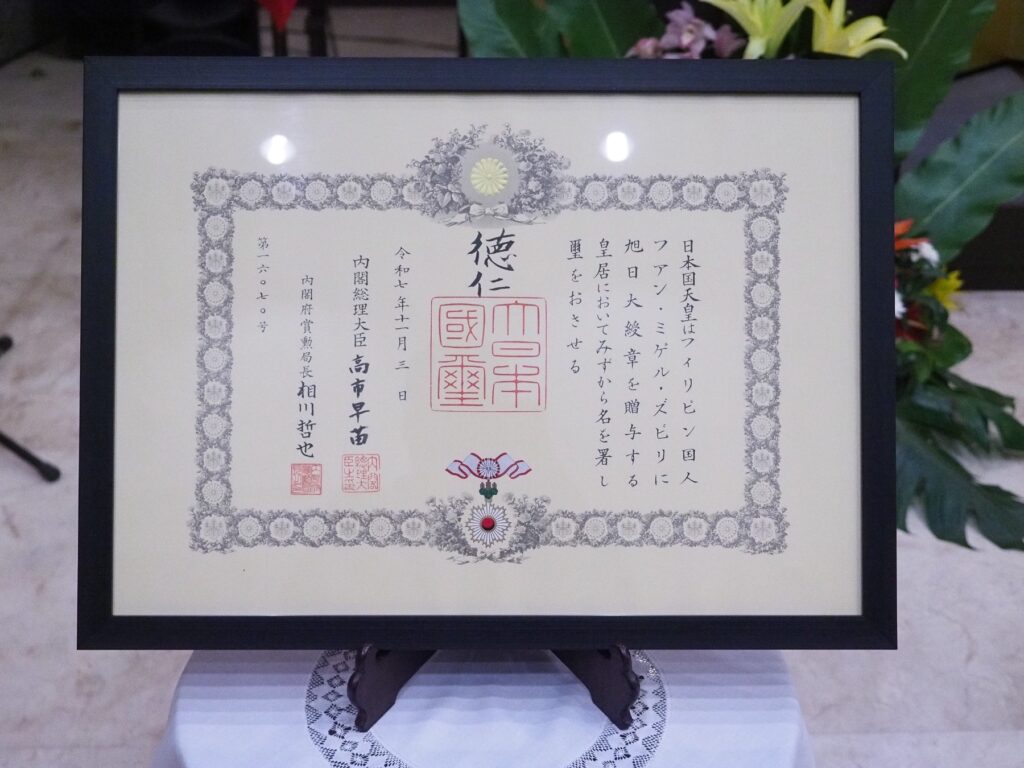 日本国天皇はフィリピン国人
フアン・ミゲル・ズビリに
旭日大綬章を贈与する
皇居においてみずから名を署し
璽をおさせる
徳仁
大日本
國璽
令和七年十一月三日
内閣総理大臣 高市早苗
内閣府賞勲局長 相川哲也
第一六〇七〇号